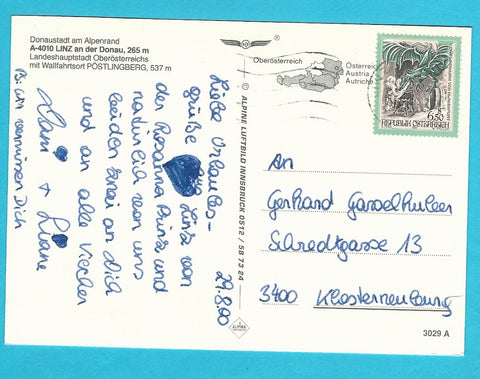 Donaustadt am Alpenrand
A-4010 LINZ an der Donau, 265 m
Landeshauptstadt Oberösterreichs
mit Wallfahrtsort PÖSTLINGBERG, 537 m
29.8.00
Liebe Urlaubs-
grüße aus Linz von
der Rosanna Prinz und
natürlich von uns
beiden zwei an Dich
und an alle Viecher
Hani + Liane
P.S: wir vermissen Dich
© ALPINE LUFTBILD INNSBRUCK 0512 / 58 73 24
ALPINE
Oberösterreich
Österreich
Austria
Autriche
6.50
REPUBLIK ÖSTERREICH
An
Gerhard Gasselhuber
Schredtgasse 13
3400 Klosterneuburg
3029 A